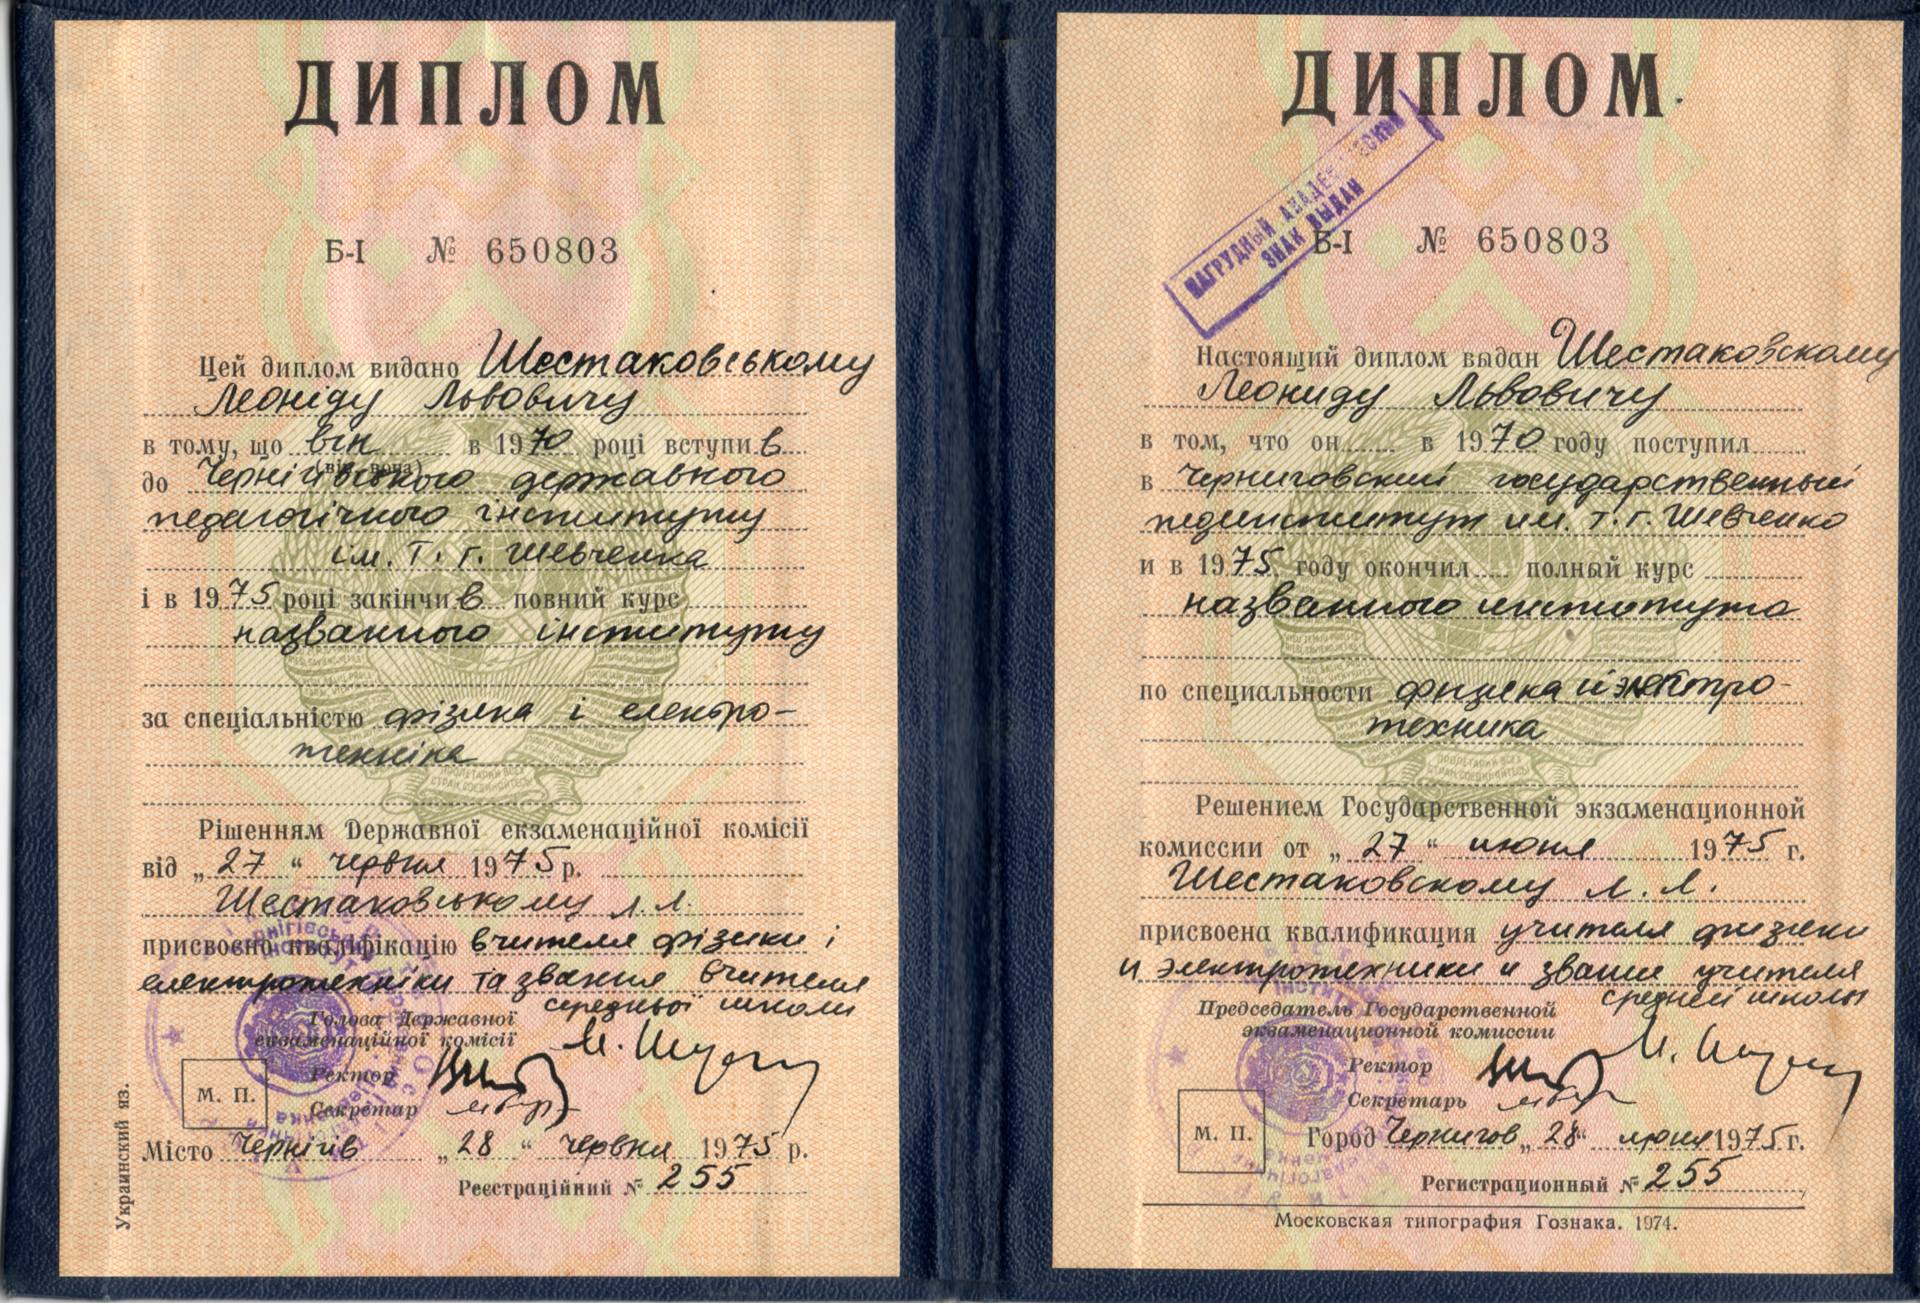 ДИПЛОМ
Б-I № 650803
Цей диплом видано Шестаковському
Леоніду Львовичу
в тому, що він в 1970 році вступив
(він, вона)
до Чернігівського державного
педагогічного інституту
ім. Т. Г. Шевченка
і в 1975 році закінчив повний курс
названного інституту
за спеціальністю фізика і електро-
техніка
ПРОЛЕТАРИИ ВСЕХ
СТРАН, СОЕДИНЯЙТЕСЬ!
Рішенням Державної екзаменаційної комісії
від „27“ червня 1975 р.
Шестаковському Л. Л.
присвоєно кваліфікацію вчителя фізики і
електротехніки та звання вчителя
середньої школи
Голова Державної
екзаменаційної комісії
Ректор
М. П.
Секретар
Місто Чернігів „28“ червня 1975 р.
Реєстраційний № 255
Украинский яз.
ДИПЛОМ
НАГРУДНЫЙ АКАДЕМИЧЕСКИЙ
ЗНАК ВЫДАН
Б-I № 650803
Настоящий диплом выдан Шестаковскому
Леониду Львовичу
в том, что он в 1970 году поступил
в Черниговский государственный
пединститут им. Т. Г. Шевченко
и в 1975 году окончил полный курс
названного института
по специальности физика и электро-
техника
ПРОЛЕТАРИИ ВСЕХ
СТРАН, СОЕДИНЯЙТЕСЬ!
Решением Государственной экзаменационной
комиссии от „27“ июня 1975 г.
Шестаковскому Л. Л.
присвоена квалификация учителя физики
и электротехники и звание учителя
средней школы
Председатель Государственной
экзаменационной комиссии
Ректор
Секретарь
М. П.
Город Чернигов „28“ июня 1975 г.
Регистрационный № 255
Московская типография Гознака. 1974.